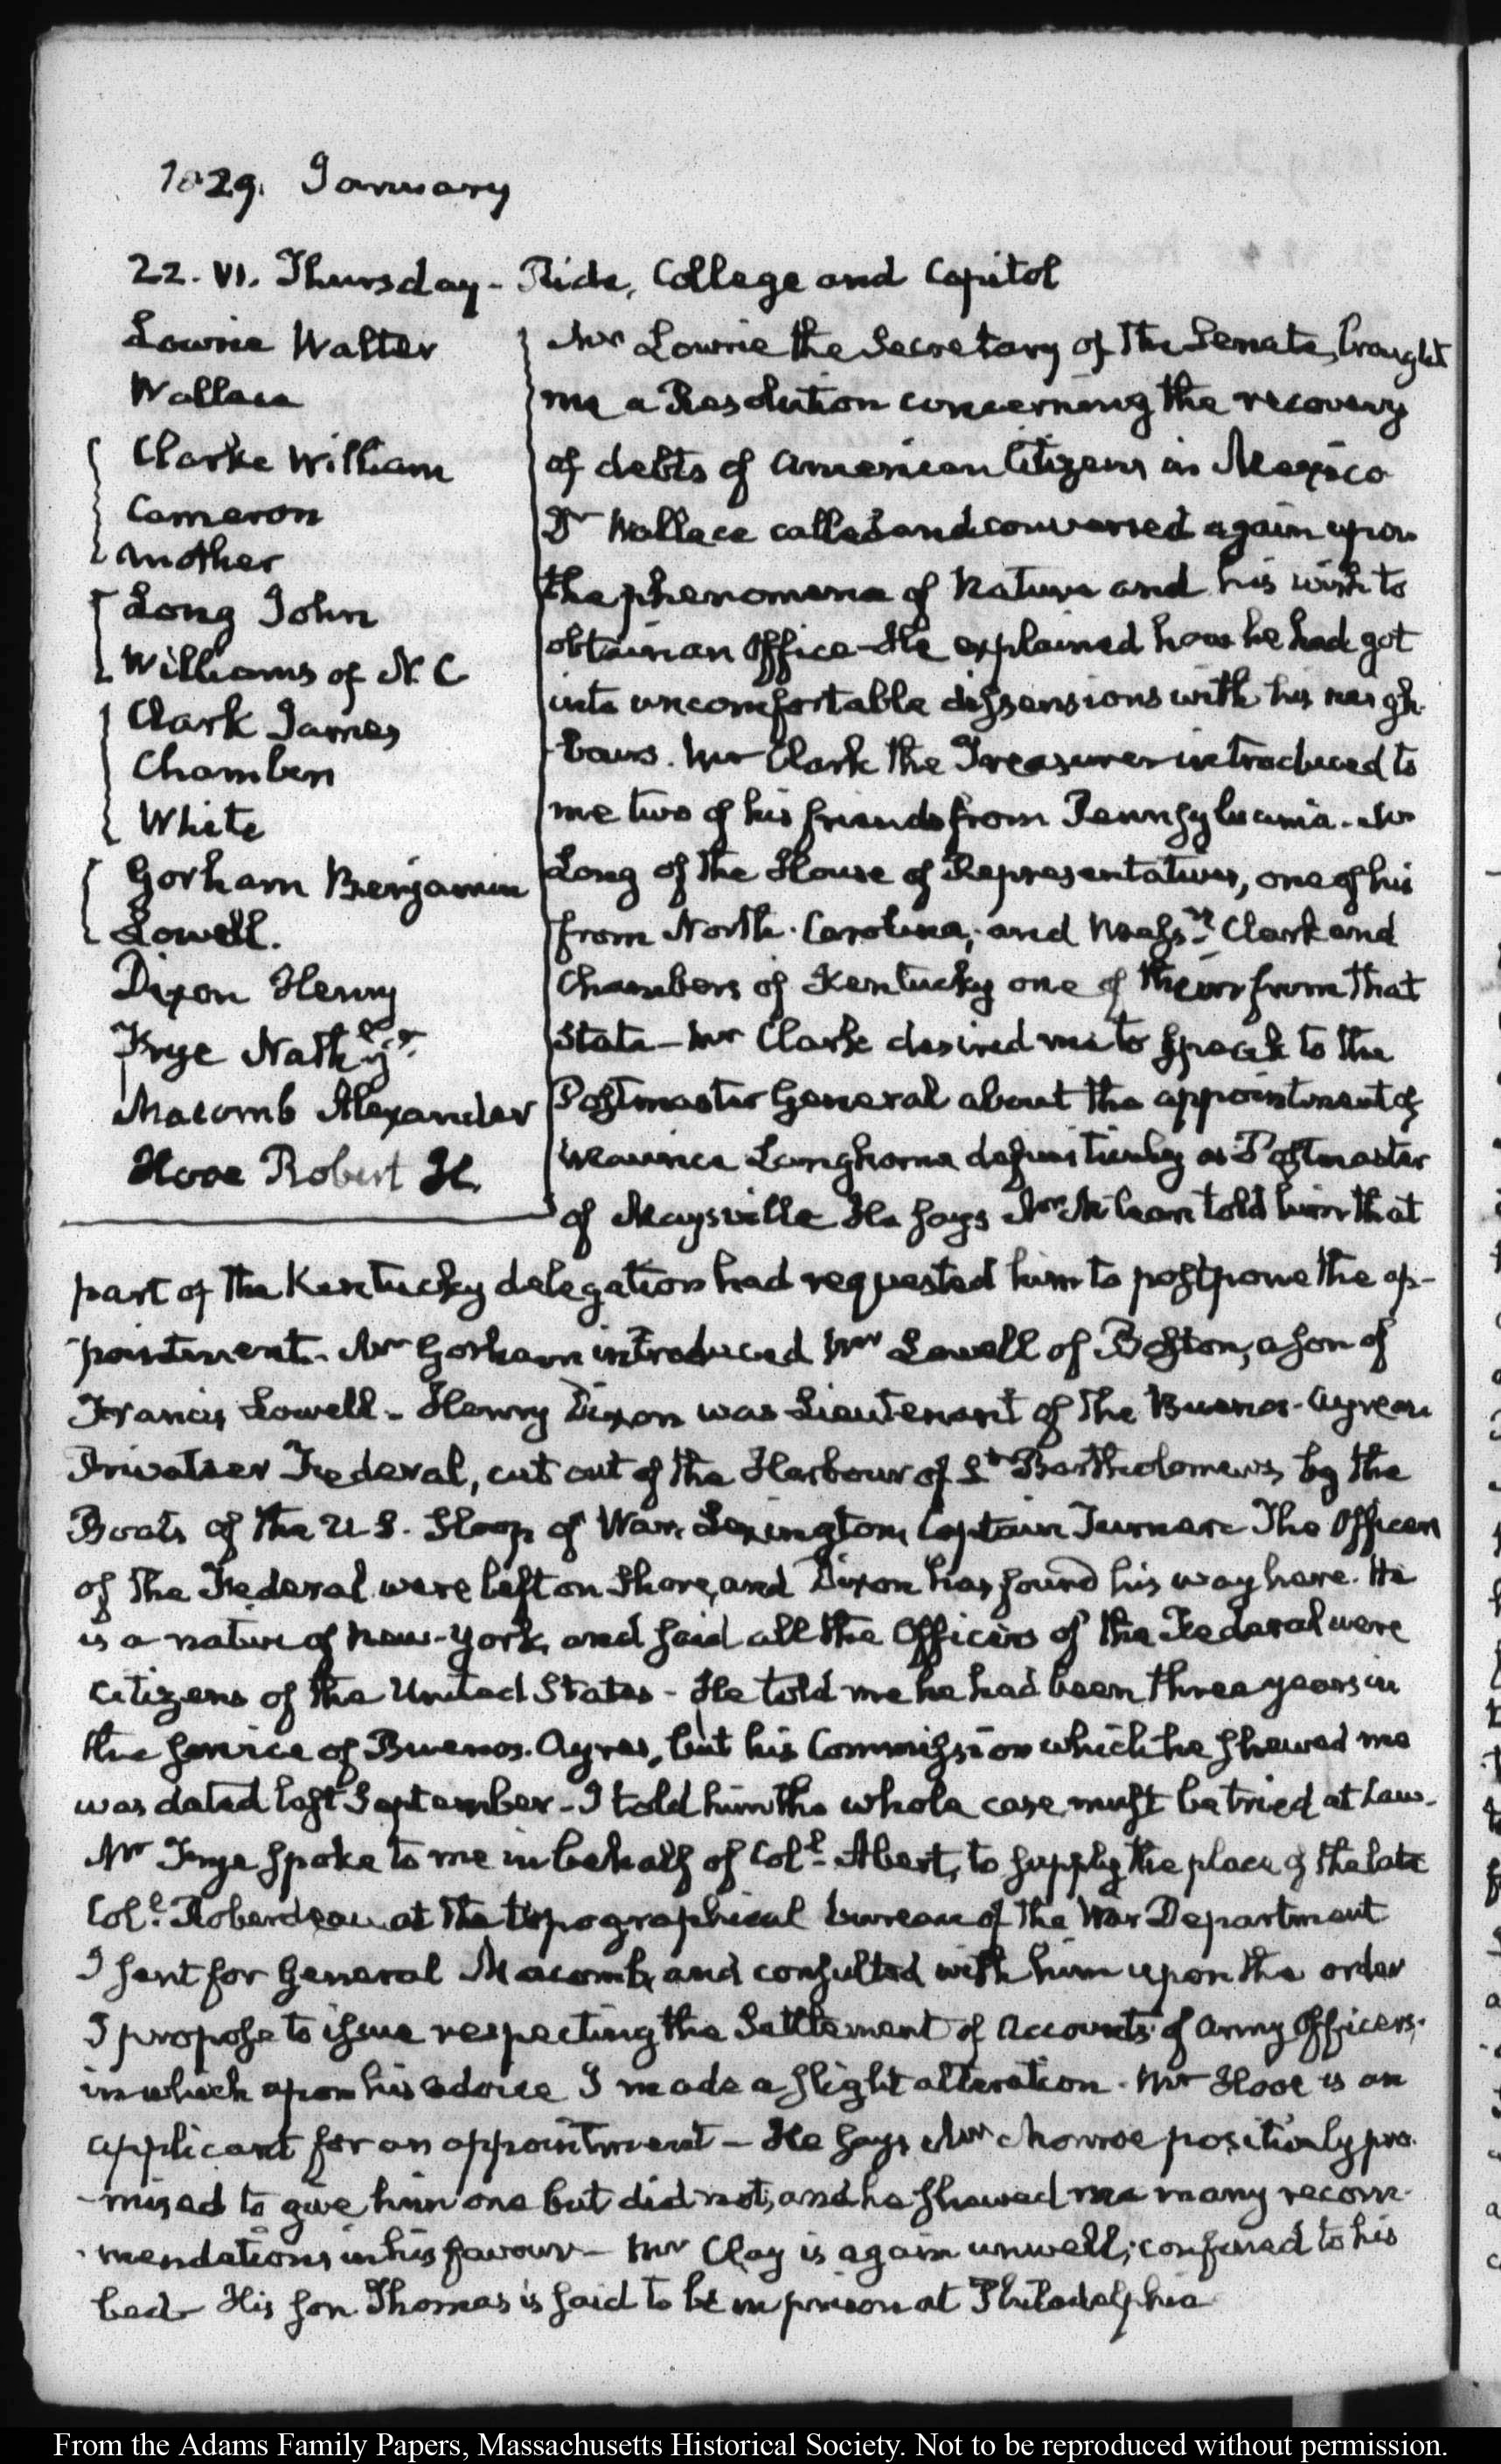 1829. January
22. VI. Thursday - Ride, College and Capitol
Lowrie Walter
Wallace
Clarke William
Cameron
another
Long John
Williams of N. C
Clark James
Chambers
White
Gorham Benjamin
Lowell.
Dixon Henry
Frye Nath.
Macomb Alexander
Hooe Robert H.
Mr Lowrie the Secretary of the Senate, brought
me a Resolution concerning the recovery
of debts of American Citizens in Mexico
Dr Wallace called and conversed again upon
the phenomena of Nature and his wish to
obtain an Office - He explained how he had got
into uncomfortable dissensions with his neigh-
-bours. Mr Clark the Treasurer introduced to
me two of his friends from Pennsylvania. Mr
Long of the House of Representatives, one of his
from North-Carolina, and Messrs. Clark and
Chambers of Kentucky one of theirs from that
State - Mr Clark desired me to speak to the
Postmaster General about the appointment of
Maurice Langhorne definitively as Postmaster
of Maysville He says Mr McLean told him that
part of the Kentucky delegation had requested him to postpone the ap-
-pointment. Mr Gorham introduced Mr Lowell of Boston, a son of
Francis Lowell - Henry Dixon was Lieutenant of the Buenos-Ayrean
Privateer Federal, cut out of the Harbour of St Bartholomews, by the
Boats of the U.S. Sloop of War Lexington, Captain Turner. The Officers
of the Federal were left on shore, and Dixon has found his way here. He
is a native of New-York, and said all the Officers of the Federal were
Citizens of the United States - He told me he had been three years in
the service of Buenos-Ayres, but his Commission which he shewed me
was dated last September - I told him the whole case must be tried at Law.
Mr Frye spoke to me in behalf of Coll. Abert, to supply the place of the late
Coll. Roberdeau at the topographical bureau of the War Department
I sent for General Macomb, and consulted with him upon the order
I propose to issue respecting the Settlement of Accounts of Army Officers.
in which upon his advice I made a slight alteration. Mr Hooe is an
applicant for an appointment - He says Mr Monroe positively pro-
-mised to give him one but did not, and he shewed me many recom-
-mendations in his favour - Mr Clay is again unwell; confined to his
bed - His son Thomas is said to be in prison at Philadelphia
From the Adams Family Papers, Massachusetts Historical Society. Not to be reproduced without permission.